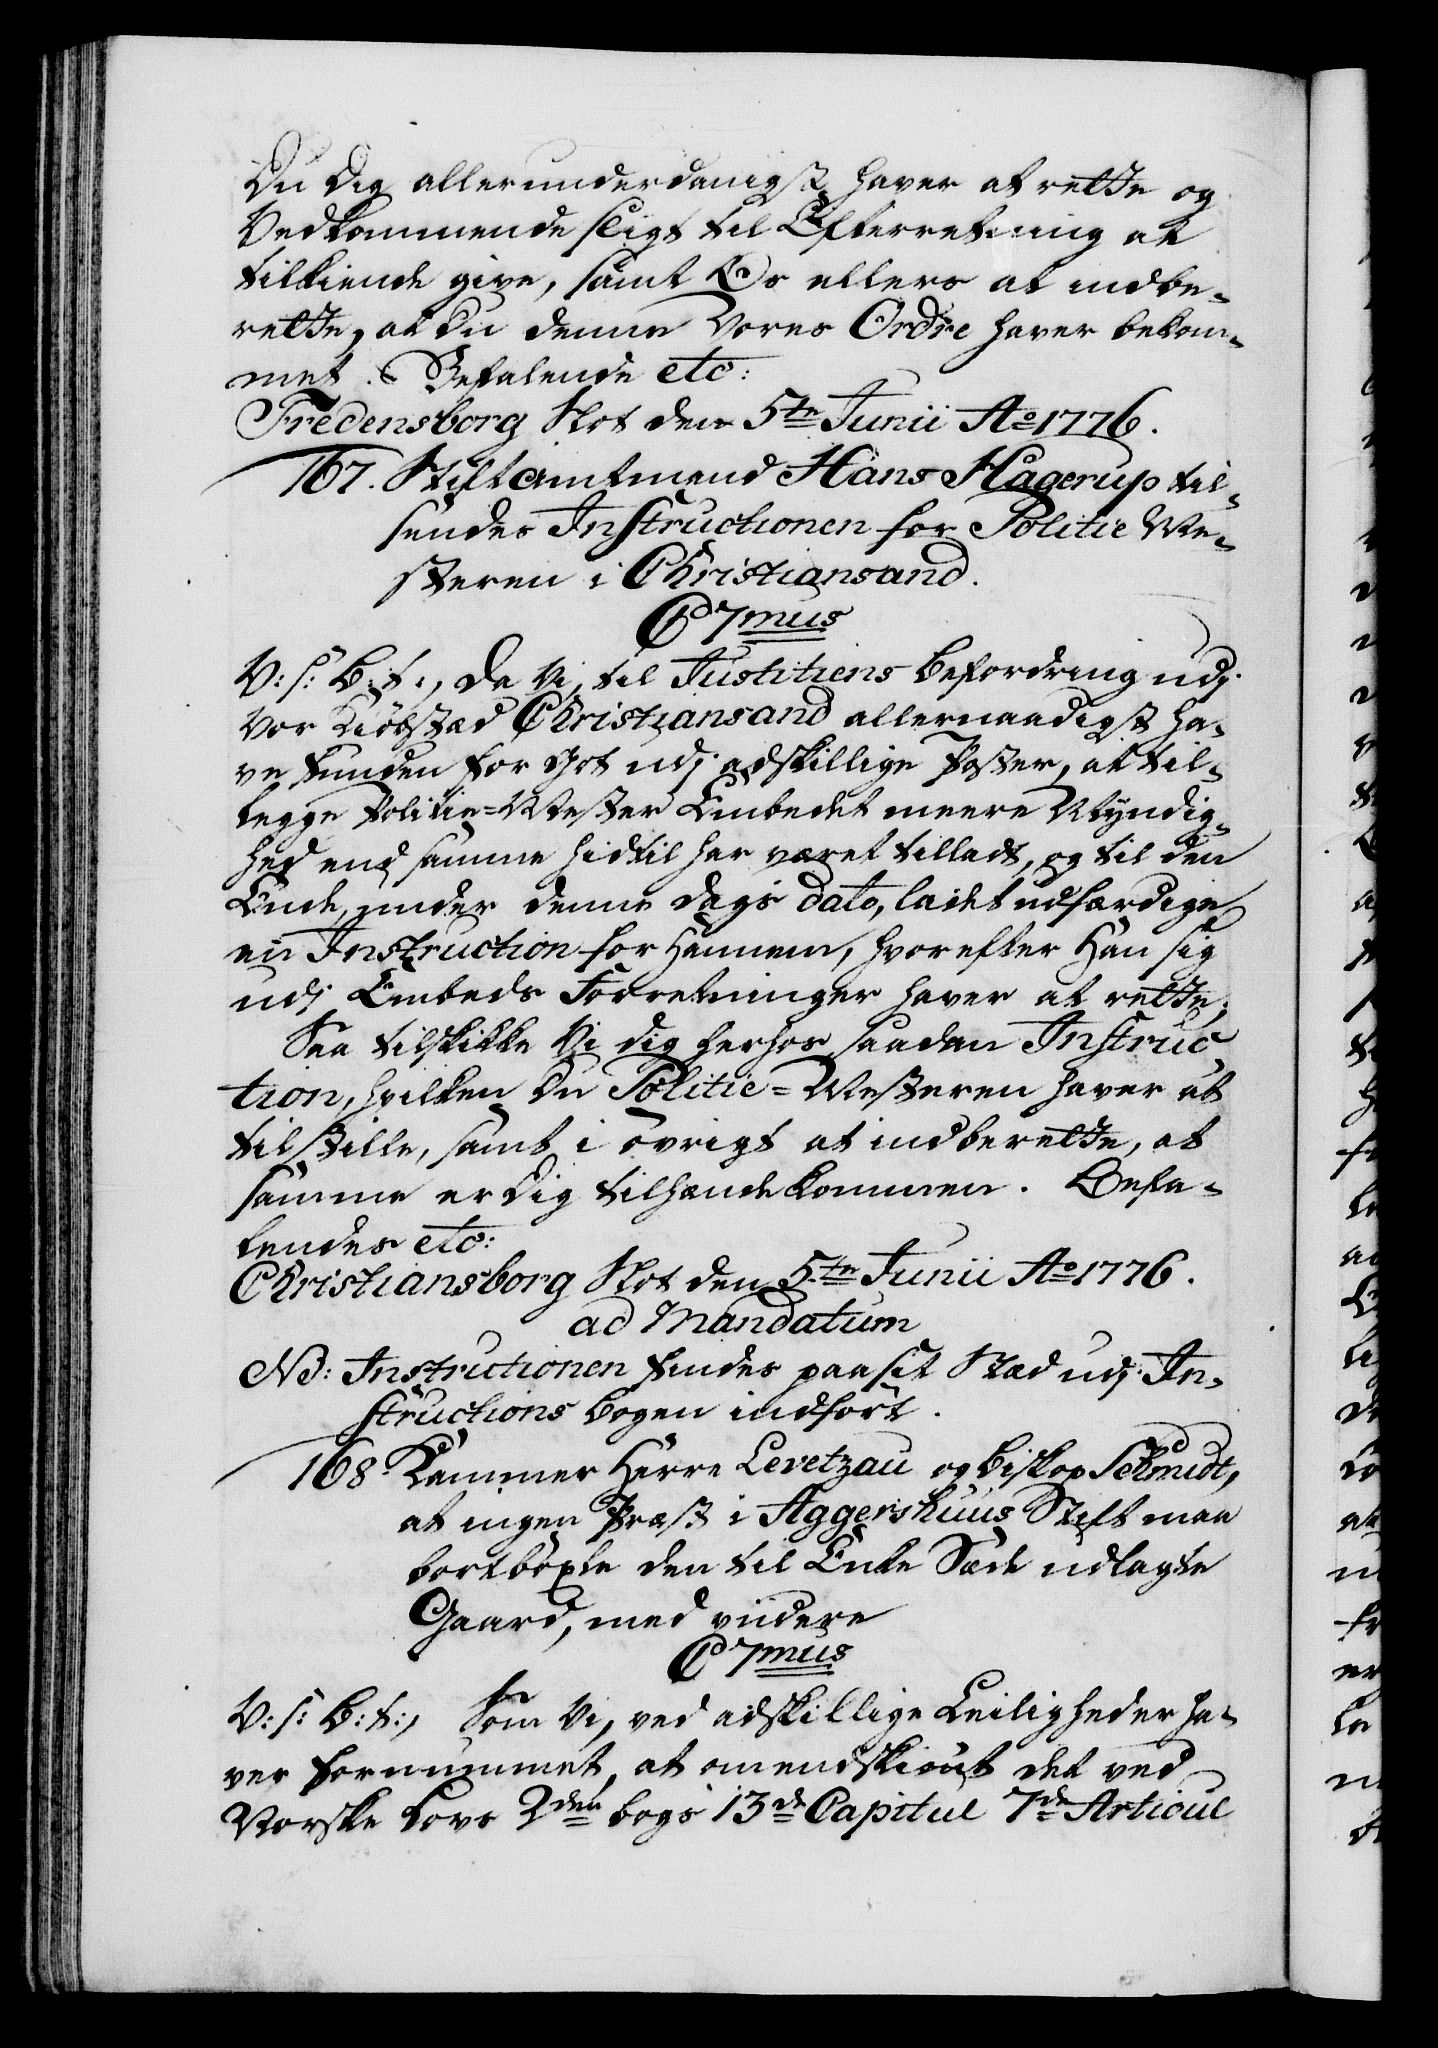 Du dig allerunderdanigst haver at rette og
Vedkommende sligt til Efterretning at
tilkiende give, samt Os ellers at indbe-
rette, at du denne Vores Ordre haver bekom-
met. Befalende etc:
Fredensborg Slot den 5te Junii Ao 1776.
167. Stiftamtmand Hans Hagerup til-
sendes Instructionen for Politie Me-
steren i Christiansand.
C 7mus
V: s: B: t:, Da Vi, til Justitiens Befordring udj
Vor Kiöbstæd Christiansand allernaadigst ha-
ve funden for got udj adskillige Poster, at til-
legge Politie-Mester Embedet meere Myndig-
hed end samme hidtil har været tilladt, og til den
Ende, under denne Dags dato, ladet udfærdige
en Instruction for Hannem, hvorefter Han sig
udj Embeds Forretninger haver at rette;
Saa tilskikke Vi dig herhos saadan Instruc-
tion, hvilken Du Politie-Mesteren haver at
tilstille, samt i övrigt at indberette, at
samme er dig tilhændekommen. Befa-
lendes etc:
Christiansborg Slot den 5te Junii Ao 1776.
ad Mandatum
NB: Instructionen findes paa sit Stæd udj In-
structions bogen indfört.
168. Kammer Herre Levetzau og Biskop Schmidt,
at ingen Præst i Aggershuus Stift maa
bortböxle den til Enke Sæde udlagte
Gaard, med viidere
C 7mus
V: s: B: t:, Som Vi, ved adskillige Leiligheder ha-
ver fornummet, at omendskiönt det ved
Norske Lovs 2den bogs 13de Capitul 7de Articul